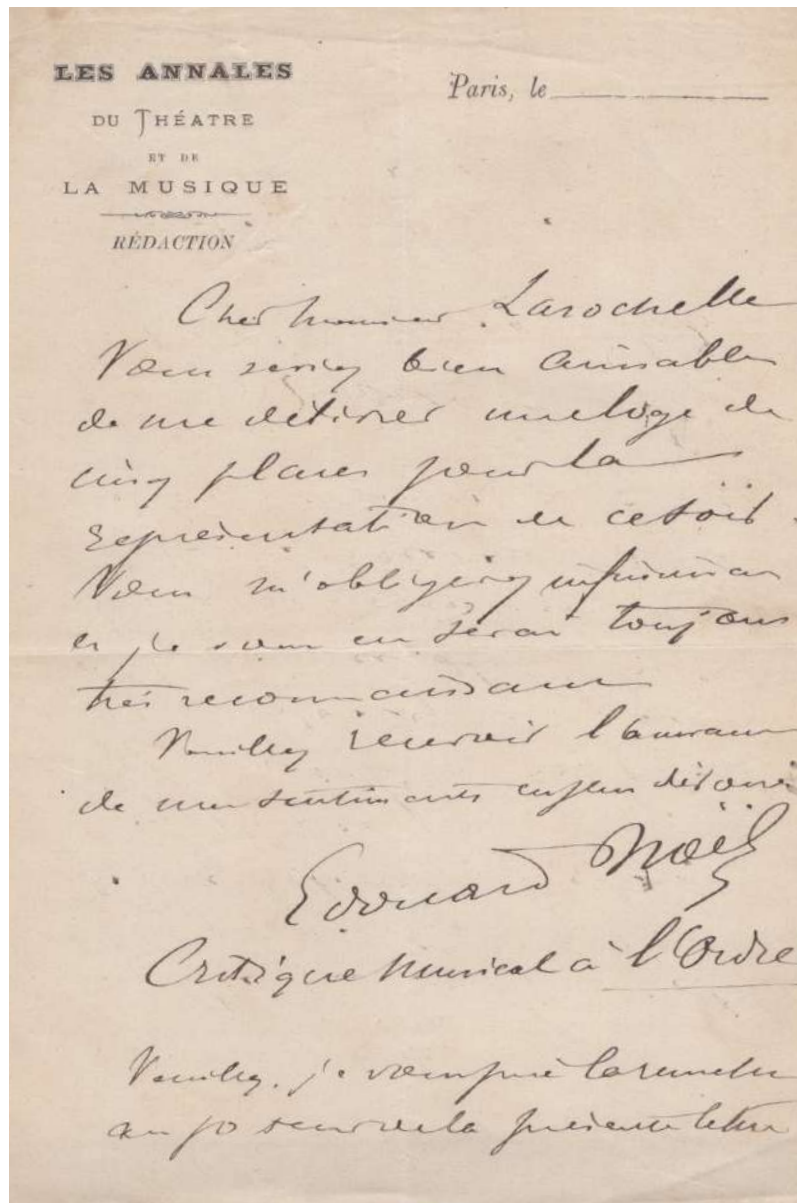 LES ANNALES
DU THÉATRE
ET DE
LA MUSIQUE
RÉDACTION
Paris, le
Cher monsieur Larochelle
Vous seriez bien aimable
de me délivrer une loge de
cinq places pour la
représentation de ce soir.
Vous m'obligerez infiniment
et je vous en serai toujours
très reconnaissant
Veuillez recevoir l'assurance
de mes sentiments dévoués
Edouard Noël
Critique musical à l'Ordre
Veuillez, je vous prie la remettre
au porteur de la présente lettre